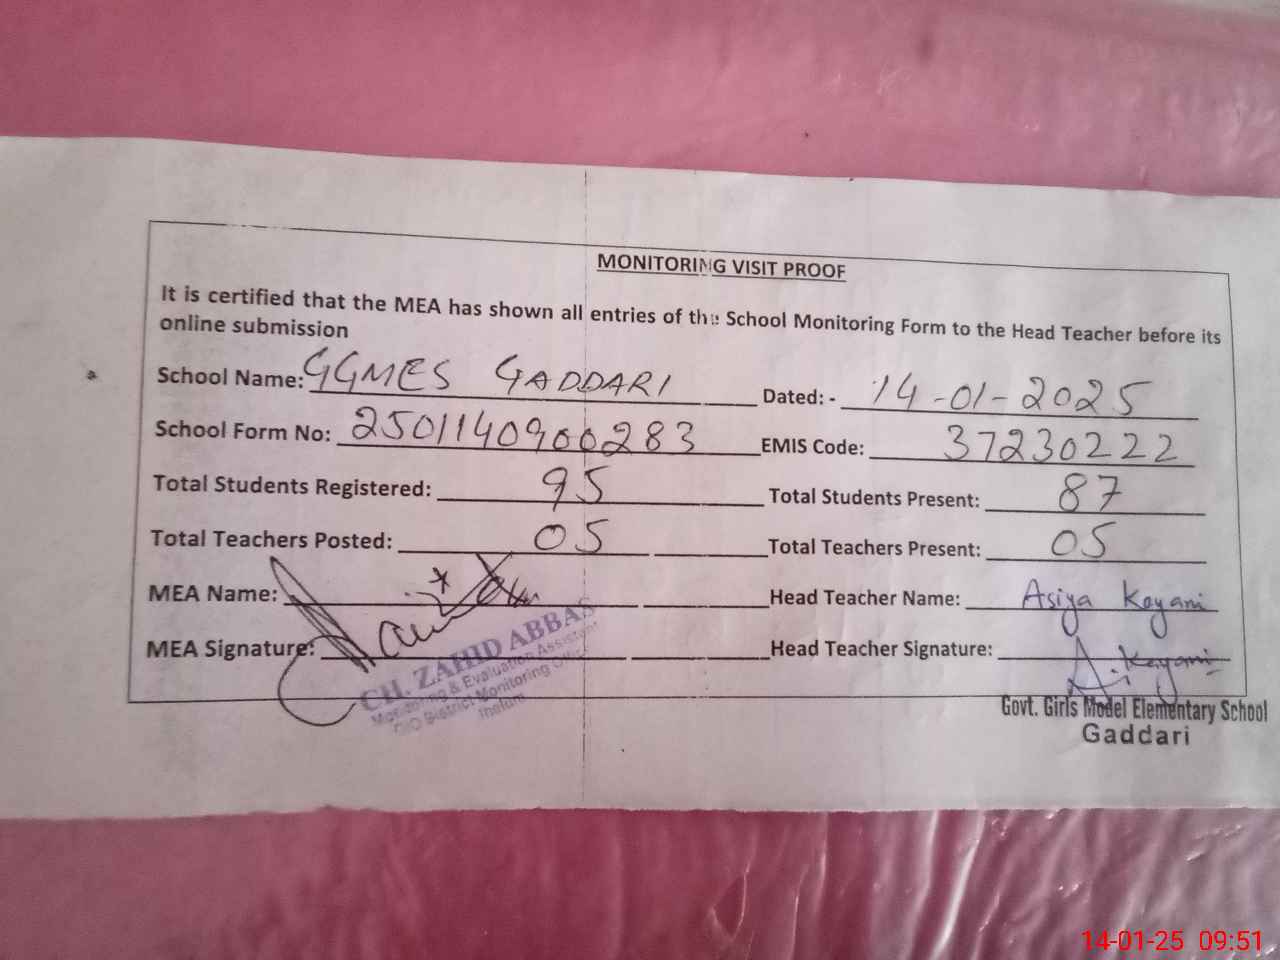 MONITORING VISIT PROOF
It is certified that the MEA has shown all entries of the School Monitoring Form to the Head Teacher before its
online submission
School Name: GGMES GADDARI Dated: - 14-01-2025
School Form No: 2501140900283 EMIS Code: 37230222
Total Students Registered: 95 Total Students Present: 87
Total Teachers Posted: 05 Total Teachers Present: 05
MEA Name: Head Teacher Name: Asiya Kayani
MEA Signature: Head Teacher Signature: A. Kayani
CH. ZAHID ABBAS
Monitoring & Evaluation Assistant
O/O District Monitoring Office
Jhelum
Govt. Girls Model Elementary School
Gaddari
14-01-25 09:51